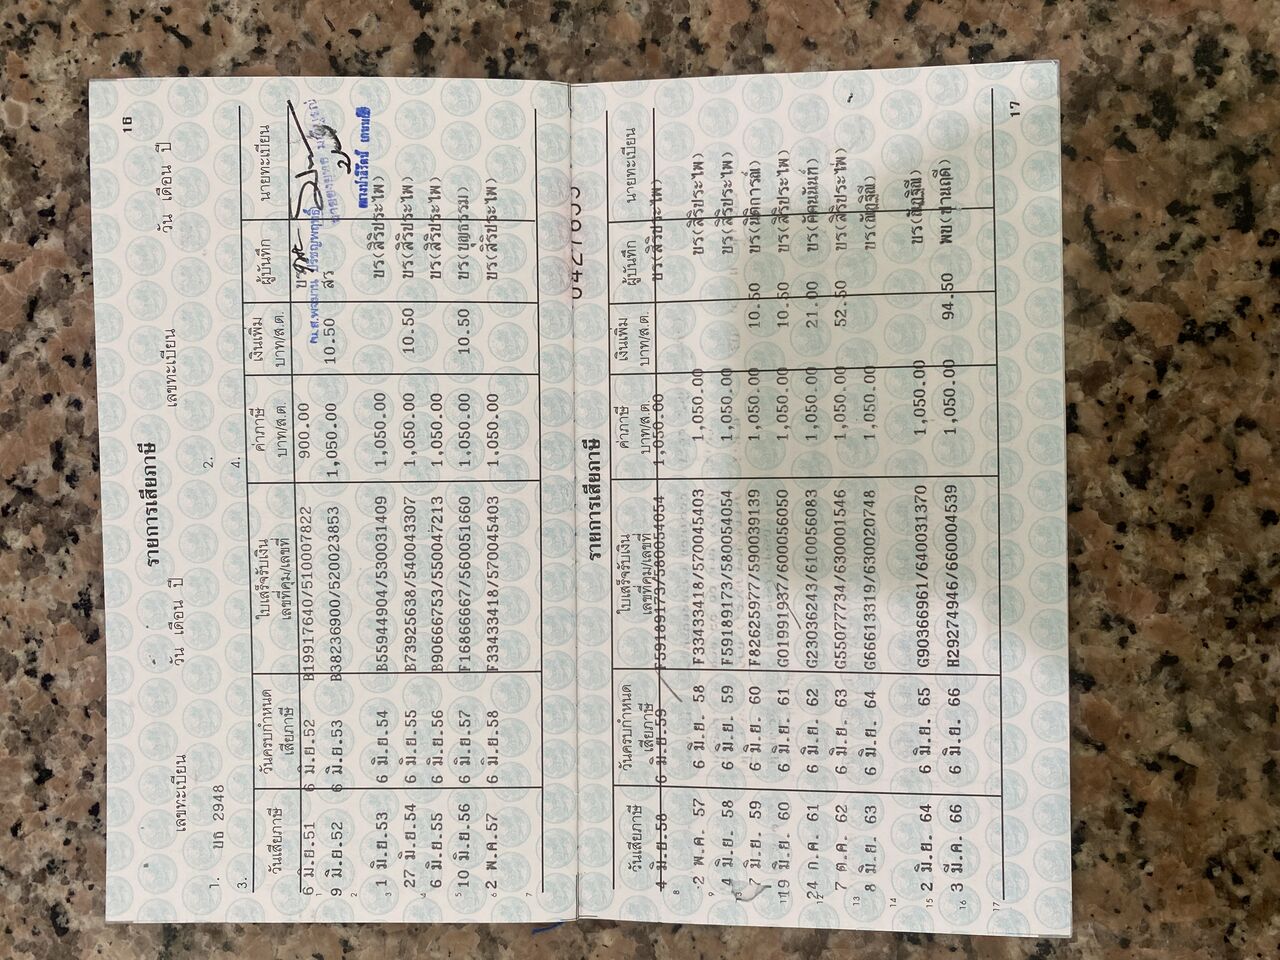 16
รายการเสียภาษี
เลขทะเบียน วัน เดือน ปี เลขทะเบียน วัน เดือน ปี
1. ษธ 2948 2.
3. 4.
วันเสียภาษี วันครบกำหนด ใบเสร็จรับเงิน ค่าภาษี เงินเพิ่ม ผู้บันทึก นายทะเบียน
เสียภาษี เล่มที่คุม/เลขที่ บาท/ส.ต. บาท/ส.ต.
6 มิ.ย.51 6 มิ.ย.52 B19917640/510007822 900.00
น.ส.พจมาน ปรัชญพฤทธิ์
1 9 มิ.ย.52 6 มิ.ย.53 B38236900/520023853 1,050.00 10.50 สร
2
3 1 มิ.ย.53 6 มิ.ย.54 B55944904/530031409 1,050.00 ขร(สิริประไพ)
4 27 มิ.ย.54 6 มิ.ย.55 B73925638/540043307 1,050.00 10.50 ขร(สิริประไพ)
6 มิ.ย.55 6 มิ.ย.56 B90666753/550047213 1,050.00 ขร(สิริประไพ)
5 10 มิ.ย.56 6 มิ.ย.57 F16866667/560051660 1,050.00 10.50 ขร(บุญธรรม)
6 2 พ.ค.57 6 มิ.ย.58 F33433418/570045403 1,050.00 ขร(สิริประไพ)
7
รายการเสียภาษี
วันเสียภาษี วันครบกำหนด ใบเสร็จรับเงิน ค่าภาษี เงินเพิ่ม ผู้บันทึก นายทะเบียน
เสียภาษี เล่มที่คุม/เลขที่ บาท/ส.ต. บาท/ส.ต.
4 มิ.ย.58 6 มิ.ย.59 F59189173/580054054 1,050.00 ขร(สิริประไพ)
8
2 พ.ค. 57 6 มิ.ย. 58 F33433418/570045403 1,050.00 ขร(สิริประไพ)
9
4 มิ.ย. 58 6 มิ.ย. 59 F59189173/580054054 1,050.00 ขร(สิริประไพ)
7 มิ.ย. 59 6 มิ.ย. 60 F82625977/590039139 1,050.00 10.50
11 19 มิ.ย. 60 6 มิ.ย. 61 G01991937/600056050 1,050.00 10.50 ขร(สิริประไพ)
12 24 ก.ค. 61 6 มิ.ย. 62 G23036243/610056083 1,050.00 21.00
7 ต.ค. 62 6 มิ.ย. 63 G55077734/630001546 1,050.00 52.50 ขร(สิริประไพ)
13 8 มิ.ย. 63 6 มิ.ย. 64 G66613319/630020748 1,050.00
14
15 2 มิ.ย. 64 6 มิ.ย. 65 G90366961/640031370 1,050.00
16 3 มี.ค. 66 6 มิ.ย. 66 H29274946/660004539 1,050.00 94.50
17
17